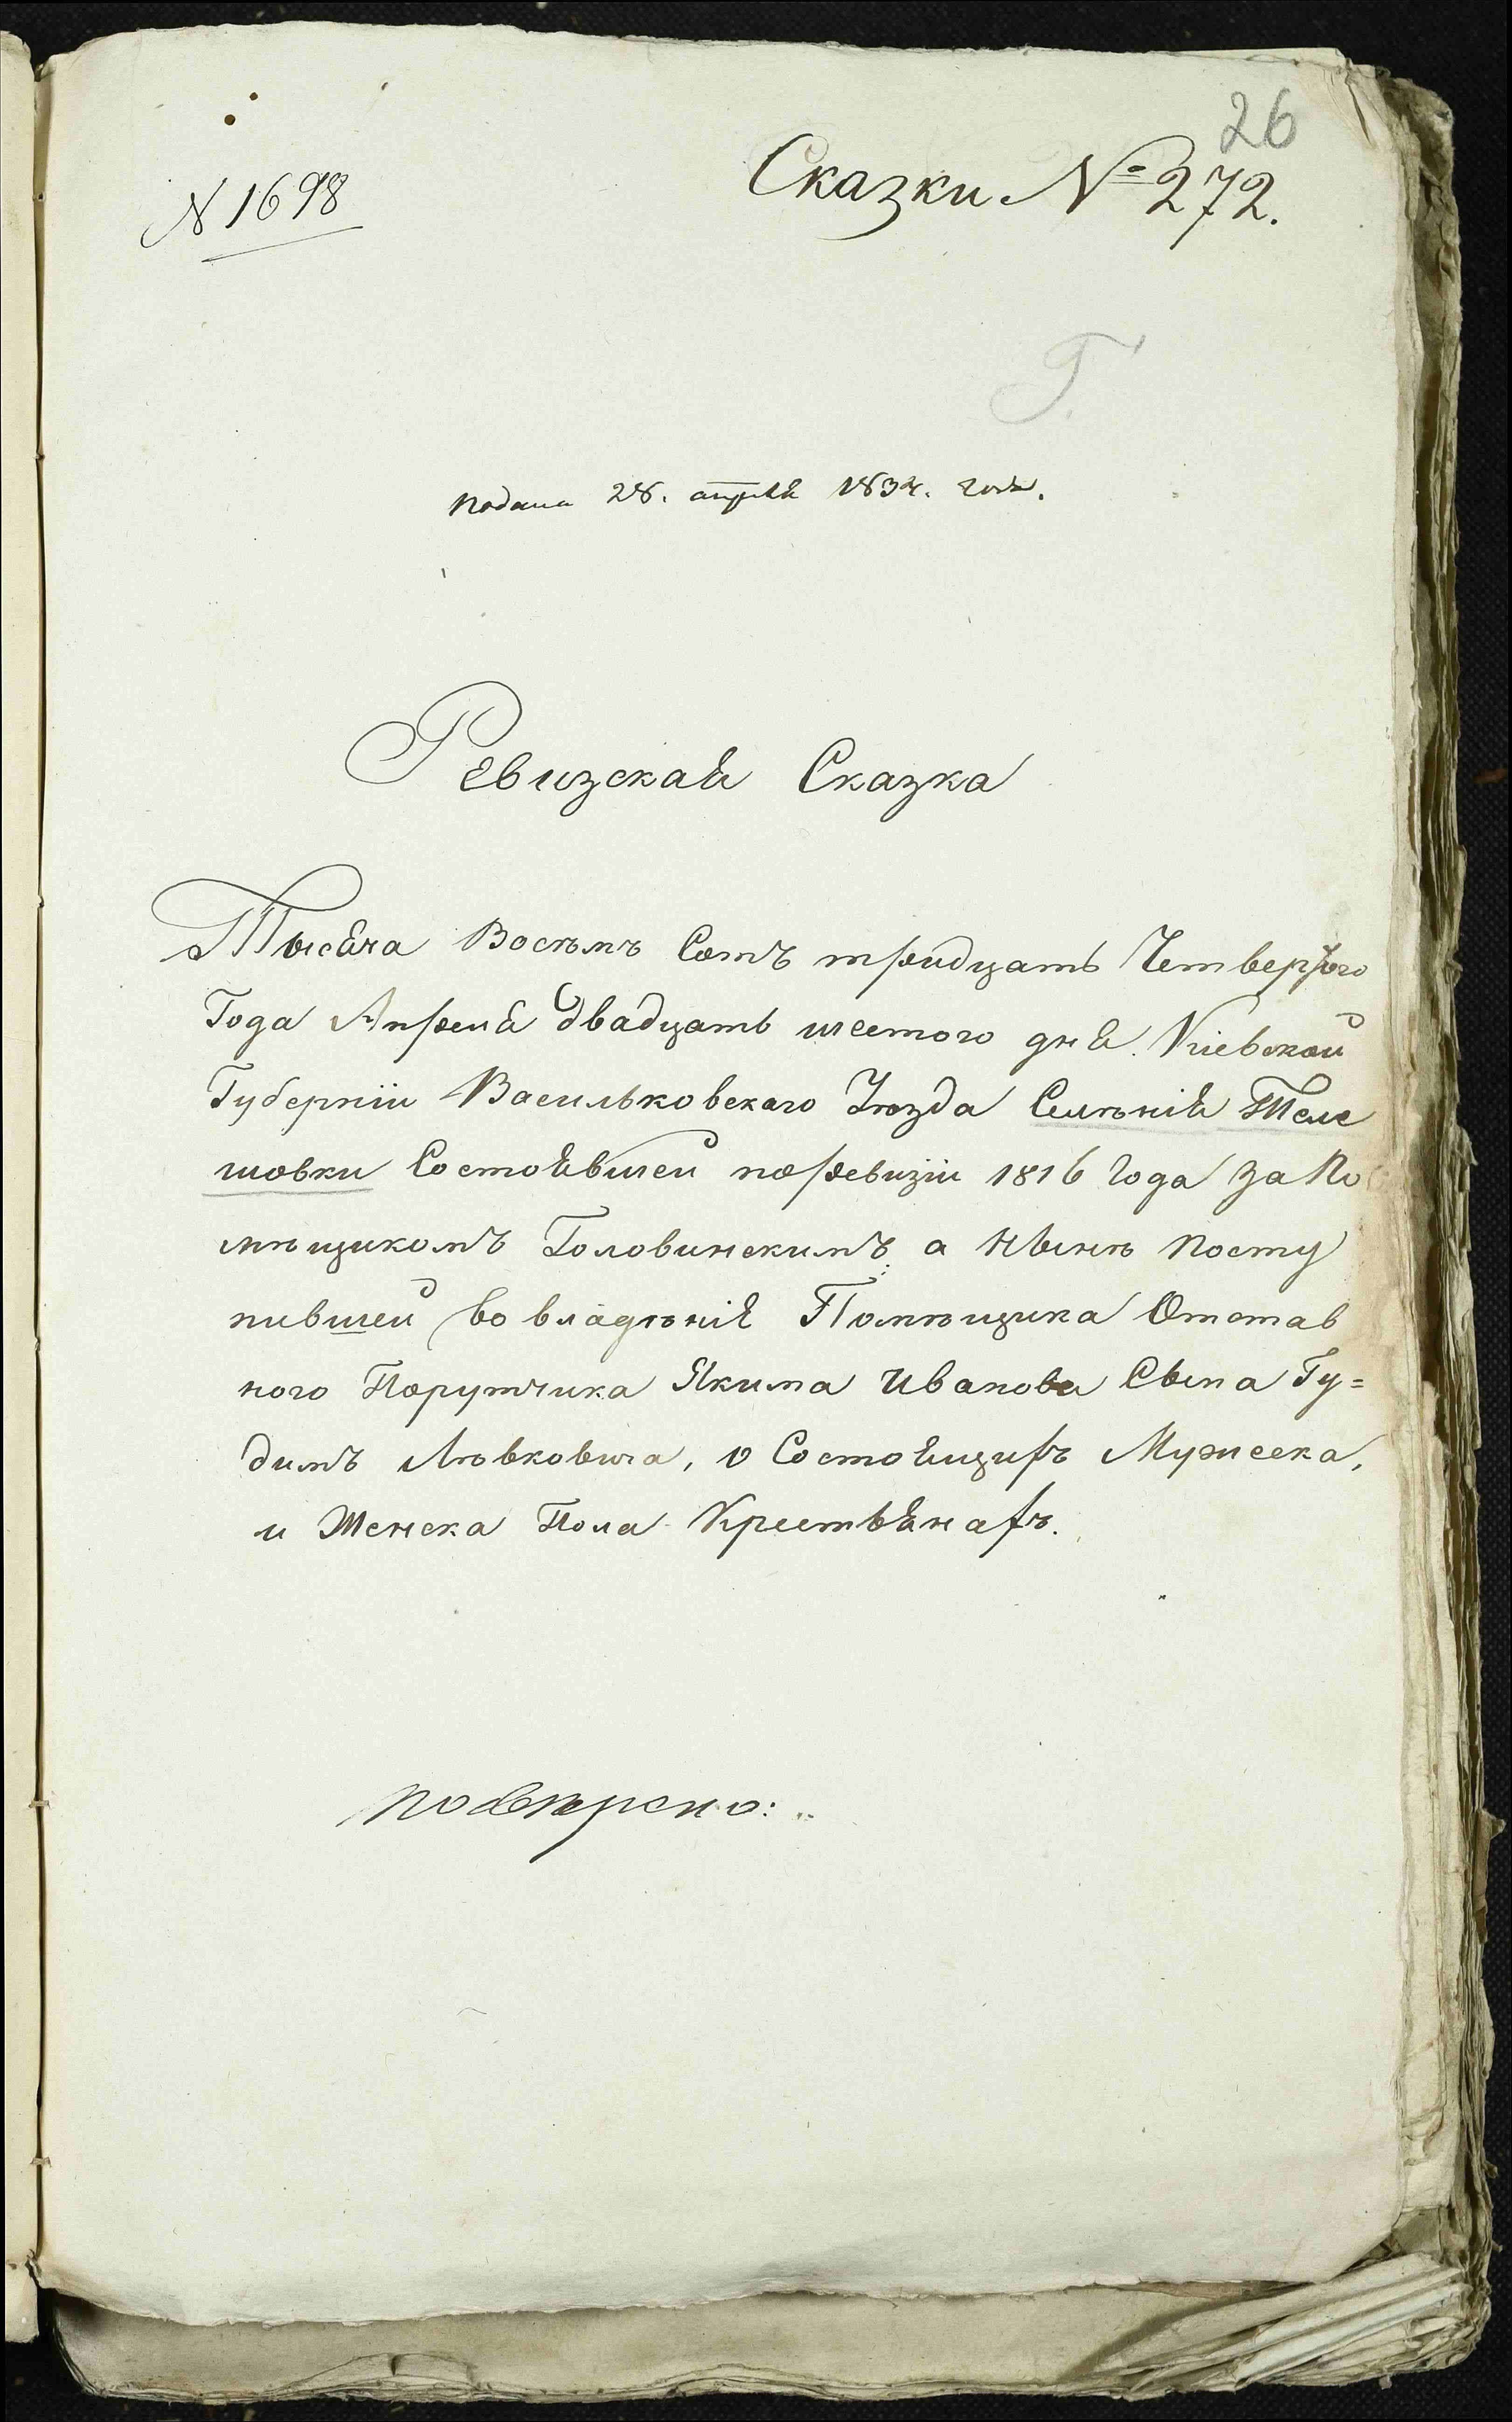 26
N 1698
Сказки № 272.
Г.
подана 28. апрѣля 1834. года.
Ревизская Сказка
Тысяча Восѣмъ Сотъ тридцать Четвертого
Года Апреля двадцать шестого дня. Кіевской
Губерніи Васильковскаго Уѣзда Селѣнія Теле
шовки Состоявшей поревизіи 1816 Года за По
мѣщикомъ Головинскимъ а Нынѣ посту
пившей во владѣнія Помѣщика Отстав
ного Порутчика Якима Иванова Сына Гу=
димъ Лѣвковича, о Состоящихъ Мужеска,
и Женска Пола Крестьянахъ.
повѣрено: